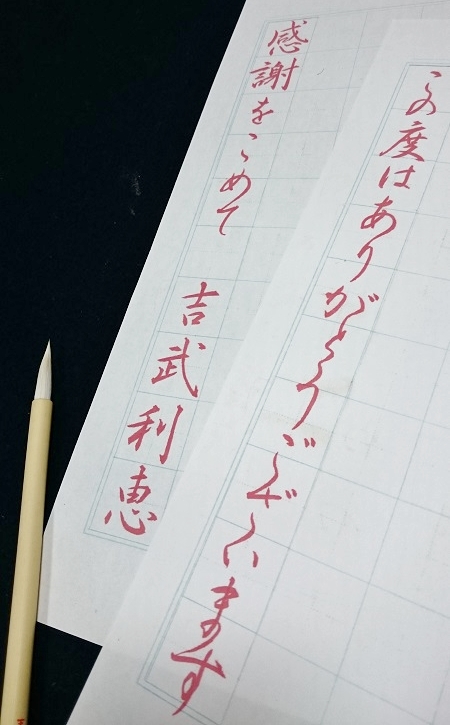 この度はありがとうございます
感謝をこめて　吉武利恵